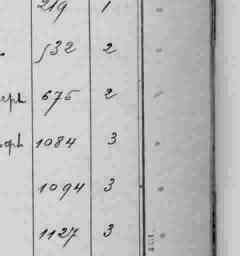 219 1
532 2
eph 675 2
oph 1084 3
1094 3
1127 3